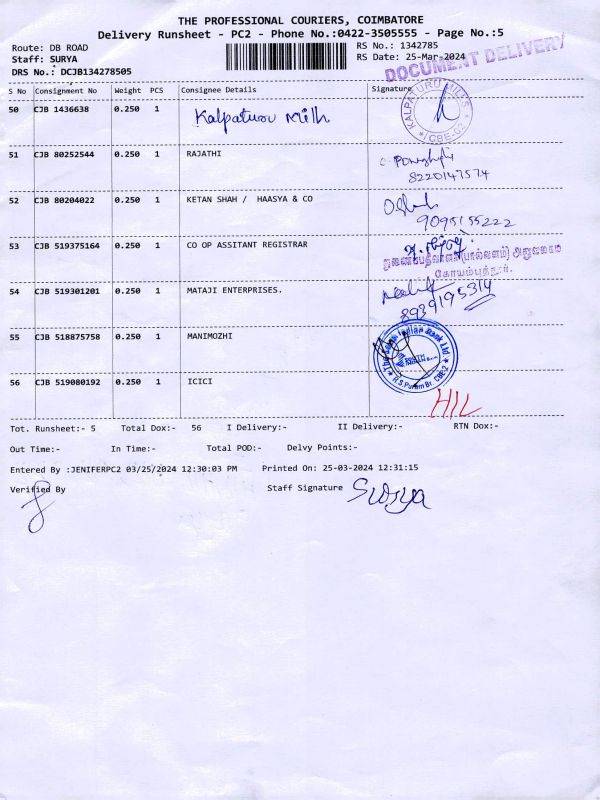 THE PROFESSIONAL COURIERS, COIMBATORE
Delivery Runsheet - PC2 - Phone No.:0422-3505555 - Page No.:5
Route: DB ROAD
RS No.: 1342785
Staff: SURYA
RS Date: 25-Mar-2024
DRS No.: DCJB134278505
DOCUMENT DELIVERY
S No Consignment No Weight PCS Consignee Details Signature
50 CJB 1436638 0.250 1 Kalpaturu Mills
KALPATURU MILLS
CBE-02
51 CJB 80252544 0.250 1 RAJATHI
8220147574
52 CJB 80204022 0.250 1 KETAN SHAH / HAASYA & CO
9095155222
53 CJB 519375164 0.250 1 CO OP ASSITANT REGISTRAR
கோயம்புத்தூர்.
54 CJB 519301201 0.250 1 MATAJI ENTERPRISES.
8939195314
55 CJB 518875758 0.250 1 MANIMOZHI
The South Indian Bank Ltd
R.S.Puram Br. CBE-2
56 CJB 519080192 0.250 1 ICICI
HIL
Tot. Runsheet:- 5 Total Dox:- 56 I Delivery:- II Delivery:- RTN Dox:-
Out Time:- In Time:- Total POD:- Delvy Points:-
Entered By :JENIFERPC2 03/25/2024 12:30:03 PM Printed On: 25-03-2024 12:31:15
Verified By Staff Signature Surya